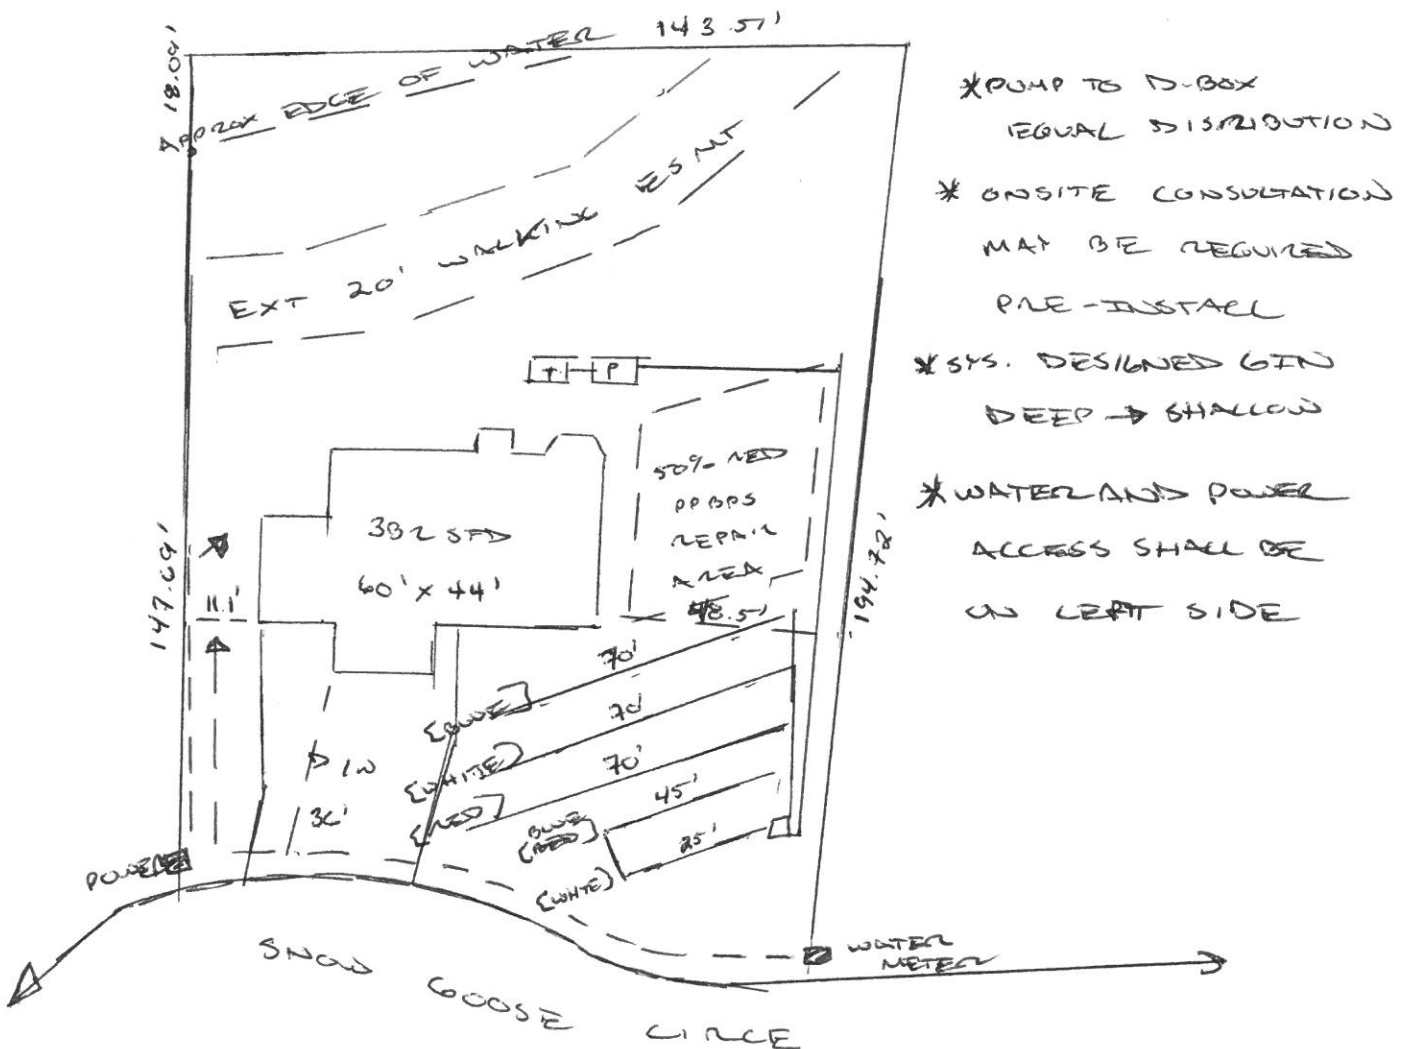 143.51'
18.09'
APPROX EDGE OF WATER
EXT 20' WALKING ESMT
T P
50% RED
PPBPS
REPAIR
AREA
48.51'
3B2 SFD
60' X 44'
11.1'
147.69'
194.72'
70'
[BLUE]
70'
[WHITE]
70'
[RED]
45'
BLUE
[RED]
25'
[WHITE]
D/W
36'
POWER
WATER
METER
SNOW GOOSE CIRCE
*PUMP TO D-BOX
EQUAL DISTRIBUTION
* ONSITE CONSULTATION
MAY BE REQUIRED
PRE-INSTALL
*SYS. DESIGNED 6IN
DEEP → SHALLOW
*WATER AND POWER
ACCESS SHALL BE
ON LEFT SIDE